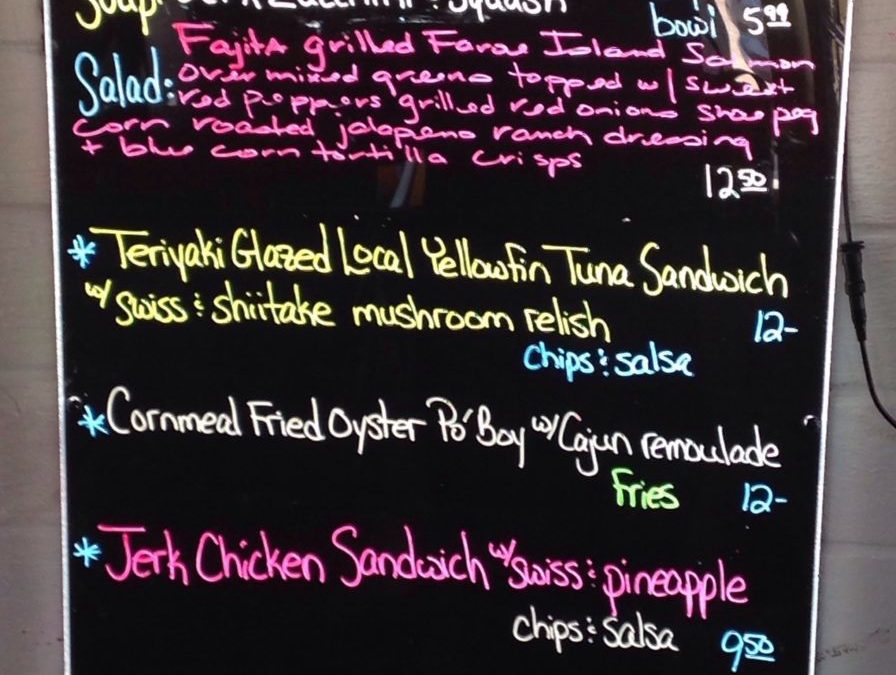 Soup:
Zucchini & Squash
bowl 5.99
Salad: Fajita grilled Faroe Island Salmon
over mixed greens topped w/ sweet
red peppers grilled red onions shoe peg
corn roasted jalapeno ranch dressing
+ blue corn tortilla crisps
12.50
* Teriyaki Glazed Local Yellowfin Tuna Sandwich
w/ Swiss & shiitake mushroom relish 12-
chips & salsa
* Cornmeal Fried Oyster Po' Boy w/ Cajun remoulade
fries 12-
* Jerk Chicken Sandwich w/ swiss & pineapple
chips & salsa 9.50